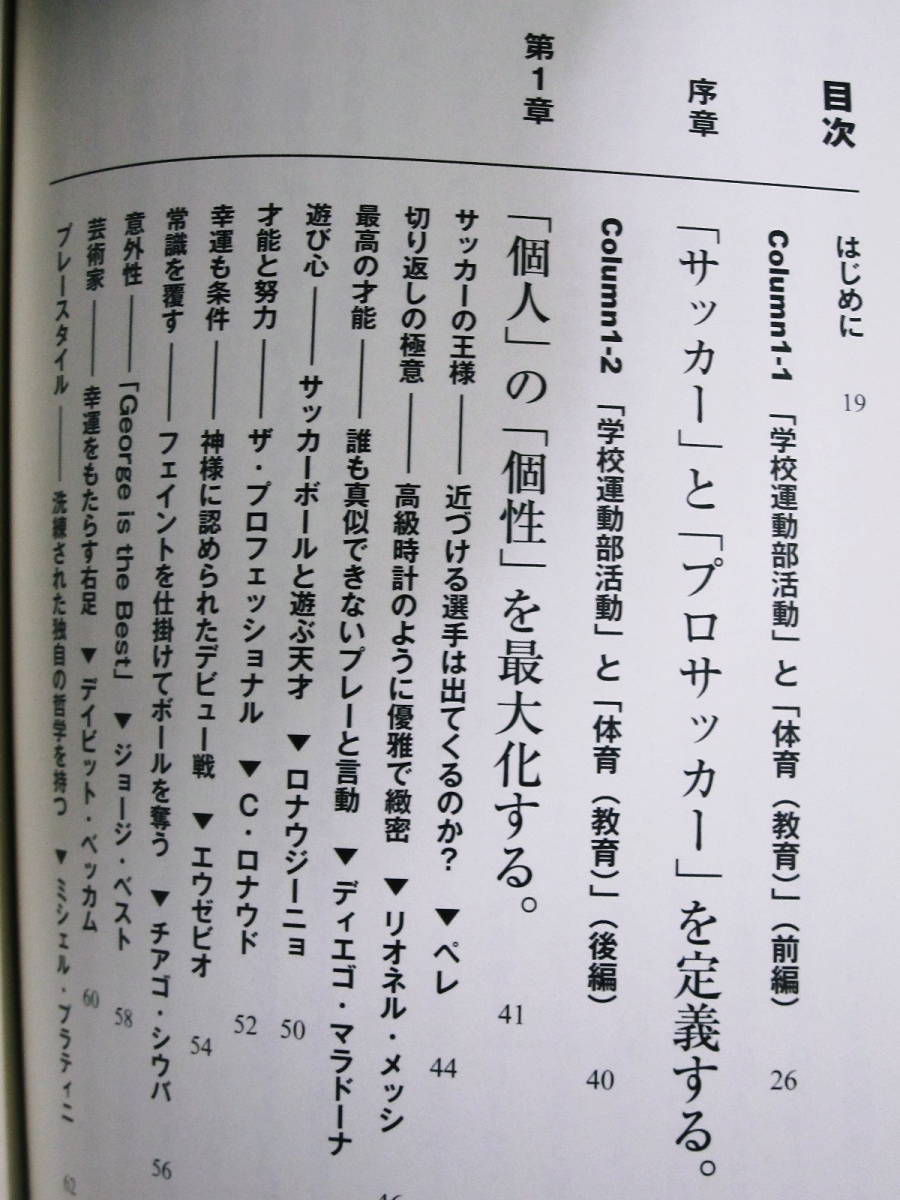 目次
はじめに 19
Column1-1 「学校運動部活動」と「体育（教育）」（前編） 26
序章 「サッカー」と「プロサッカー」を定義する。
Column1-2 「学校運動部活動」と「体育（教育）」（後編） 40
第1章 「個人」の「個性」を最大化する。 41
サッカーの王様――近づける選手は出てくるのか？ ▼ペレ 44
切り返しの極意――高級時計のように優雅で緻密 ▼リオネル・メッシ 46
最高の才能――誰も真似できないプレーと言動 ▼ディエゴ・マラドーナ
遊び心――サッカーボールと遊ぶ天才 ▼ロナウジーニョ 50
才能と努力――ザ・プロフェッショナル ▼C・ロナウド 52
幸運も条件――神様に認められたデビュー戦 ▼エウゼビオ 54
常識を覆す――フェイントを仕掛けてボールを奪う ▼チアゴ・シウバ 56
意外性――「George is the Best」 ▼ジョージ・ベスト 58
芸術家――幸運をもたらす右足 ▼デイビット・ベッカム 60
プレースタイル――洗練された独自の哲学を持つ ▼ミシェル・プラティニ 62